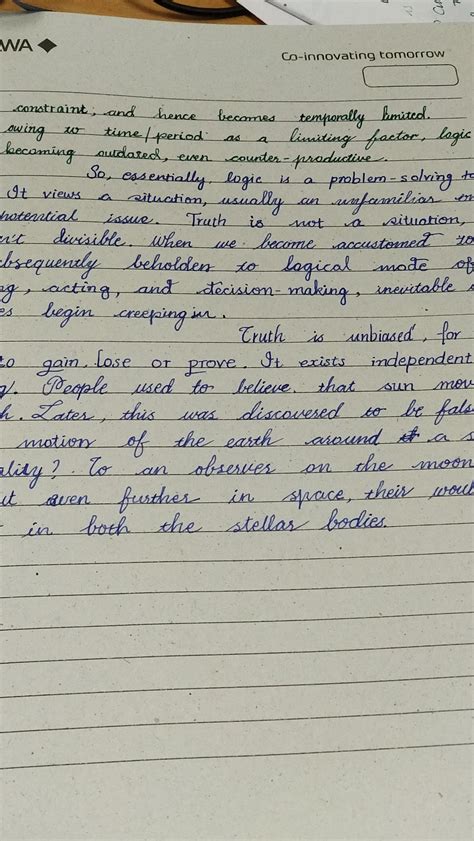 WA
Co-innovating tomorrow
constraint, and hence becomes temporally limited.
owing to time/period as a limiting factor, logic
becoming outdated, even counter-productive.
So, essentially, logic is a problem-solving to
It views a situation, usually an unfamiliar
potential issue. Truth is not a situation,
n't divisible. When we become accustomed to
ubsequently beholden to logical mode of
ng, acting, and decision-making, inevitable
es begin creeping in.
Truth is unbiased, for
to gain, lose or prove. It exists independent
y. People used to believe that sun mov
h. Later, this was discovered to be fals
motion of the earth around a s
ality? To an observer on the moon
ut even further in space, their woul
in both the stellar bodies.